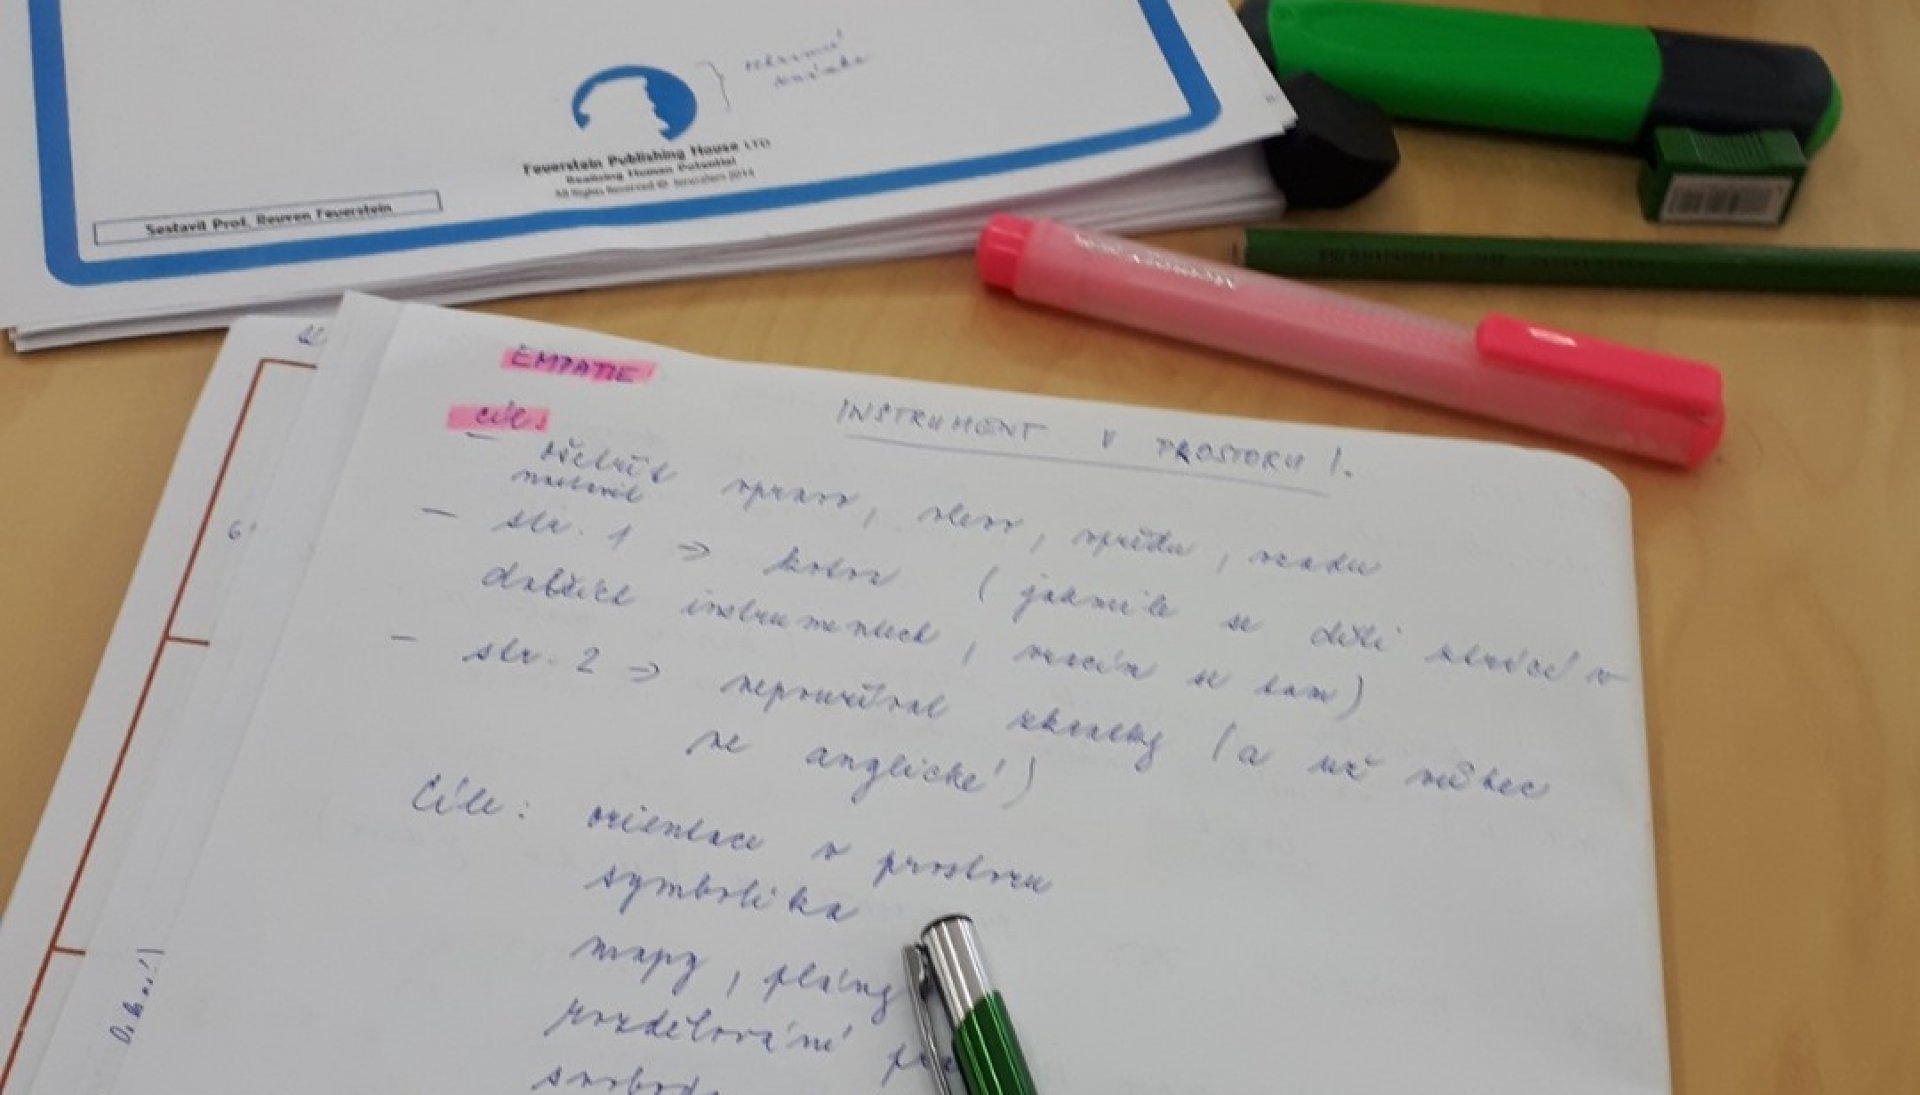 Feuerstein Publishing House LTD
Realising Human Potential
All Rights Reserved © Jerusalem 2014
Sestavil Prof. Reuven Feuerstein
EMPATIE
INSTRUMENT V PROSTORU I.
cíl:
vpravo, vlevo, vpředu, vzadu
- str. 1 → kolor (jakmile se děti ztrácí v
dalších instrumentech, vracím se tam)
- str. 2 → nepoužívat zkratky (a už vůbec
ne anglické!)
Cíle: orientace v prostoru
symbolika
mapy, plány
rozdělování
6'